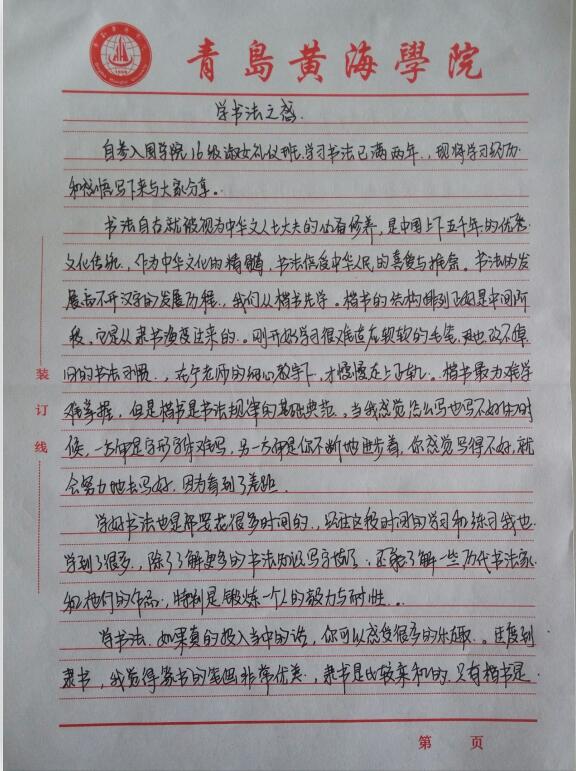 青島黄海學院
学书法之感
自参入国学院16级淑女礼仪班学习书法已满两年.,现将学习经历
和感悟写下来与大家分享。
书法自古就被视为中华文人士大夫的必备修养,是中国上下五千年的优秀
文化传统,作为中华文化的精髓,书法倍受中华人民的喜爱与推崇。书法的发
展离不开汉字的发展历程.,我们从楷书先学。楷书的结构排列正好是中间阶
段,它是从隶书演变过来的.。刚开始学习很难适应软软的毛笔,也改不掉
旧的书法习惯.,在宁老师的细心教导下,才慢慢走上正轨.。楷书最为难学
难掌握,但是楷书是书法规律的基础典范,当我感觉怎么写也写不好的时
候,一方面是字形字体难写,另一方面是你不断地进步着,你感觉写得不好,就
会努力地去写好,因为看到了差距.
学好书法也是需要花很多时间的.,经过这段时间的学习和练习我也
学到了很多.,除了了解更多的书法知识写字技巧.,还能了解一些历代书法家
和他们的作品,特别是锻炼一个人的毅力与耐性.。
学书法.如果真的投入当中的话,你可以感受很多的乐趣.。
隶书,我觉得篆书的笔画非常优美.,隶书是比较亲和的.只有楷书是
装
订
线
第 页